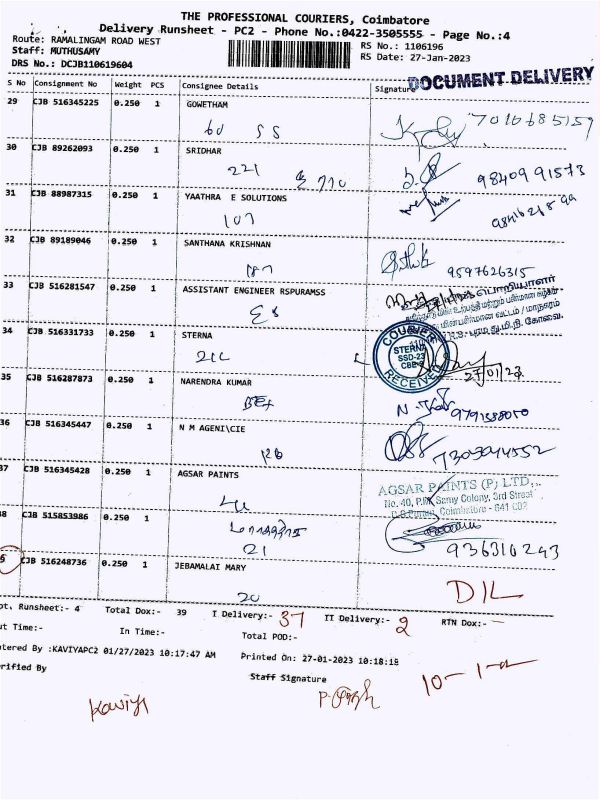 THE PROFESSIONAL COURIERS, Coimbatore
Delivery Runsheet - PC2 - Phone No.:0422-3505555 - Page No.:4
Route: RAMALINGAM ROAD WEST
Staff: MUTHUSAMY
RS No.: 1106196
DRS No.: DCJB110619604
RS Date: 27-Jan-2023
DOCUMENT DELIVERY
S No Consignment No Weight PCS Consignee Details Signature
29 CJB 516345225 0.250 1 GOWETHAM
60 SS 7010685159
30 CJB 89262093 0.250 1 SRIDHAR
221 9840991573
31 CJB 88987315 0.250 1 YAATHRA E SOLUTIONS
107
32 CJB 89189046 0.250 1 SANTHANA KRISHNAN
9597626315
33 CJB 516281547 0.250 1 ASSISTANT ENGINEER RSPURAMSS
34 CJB 516331733 0.250 1 STERNA
212
COURIER
STERNA
SSD-23
CBE-2
RECEIVED
27/01/23
35 CJB 516287873 0.250 1 NARENDRA KUMAR
9791588050
36 CJB 516345447 0.250 1 N M AGENI\CIE
7305944552
37 CJB 516345428 0.250 1 AGSAR PAINTS
AGSAR PAINTS (P) LTD.,
No. 40, P.M. Samy Colony, 3rd Street
R.S.Puram, Coimbatore - 641 002
38 CJB 515853986 0.250 1
21 936310243
CJB 516248736 0.250 1 JEBAMALAI MARY
20 DIL
pt. Runsheet:- 4 Total Dox:- 39 I Delivery:- 37 II Delivery:- 2 RTN Dox:- -
ut Time:- In Time:- Total POD:-
tered By :KAVIYAPC2 01/27/2023 10:17:47 AM Printed On: 27-01-2023 10:18:18
rified By Staff Signature
Kaviya